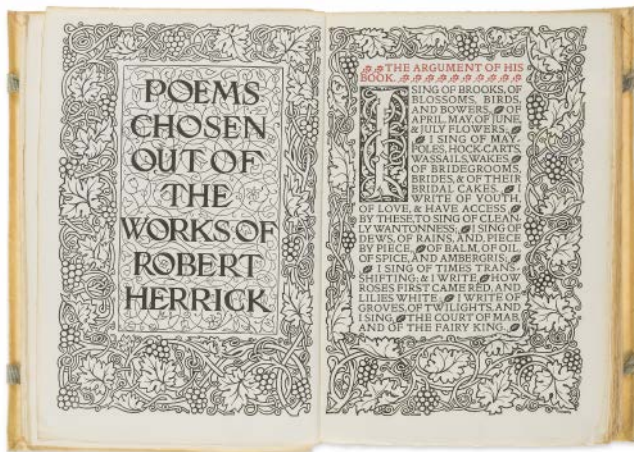 POEMS
CHOSEN
OUT OF
THE
WORKS OF
ROBERT
HERRICK
THE ARGUMENT OF HIS
BOOK.
I SING OF BROOKS, OF
BLOSSOMS, BIRDS,
AND BOWERS, OF
APRIL, MAY, OF JUNE,
& JULY FLOWERS;
I SING OF MAY-
POLES, HOCK-CARTS,
WASSAILS, WAKES,
OF BRIDEGROOMS,
BRIDES, & OF THEIR
BRIDAL CAKES. I
WRITE OF YOUTH,
OF LOVE, & HAVE ACCESS
BY THESE, TO SING OF CLEAN-
LY WANTONNESS; I SING OF
DEWS, OF RAINS, AND, PIECE
BY PIECE, OF BALM, OF OIL,
OF SPICE, AND AMBERGRIS;
I SING OF TIMES TRANS-
SHIFTING; & I WRITE HOW
ROSES FIRST CAME RED, AND
LILIES WHITE; I WRITE OF
GROVES, OF TWILIGHTS, AND
I SING THE COURT OF MAB,
AND OF THE FAIRY KING.